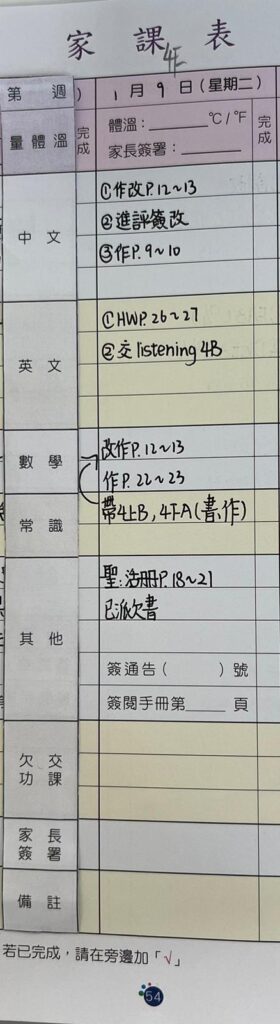 家課表
4E
第 週 ) 1月9日(星期二)
量體溫 完成 體溫:______℃/℉ 完成
家長簽署:______
中文 ①作改P.12~13
②進評簽改
③作P.9~10
英文 ①HWP.26~27
②交listening 4B
數學 改作P.12~13
作P.22~23
常識 帶4上B,4下A(書、作)
其他 聖:活冊P.18~21
已派欠書
簽通告( )號
簽閱手冊第____頁
欠交功課
家長簽署
備註
若已完成,請在旁邊加「√」
54